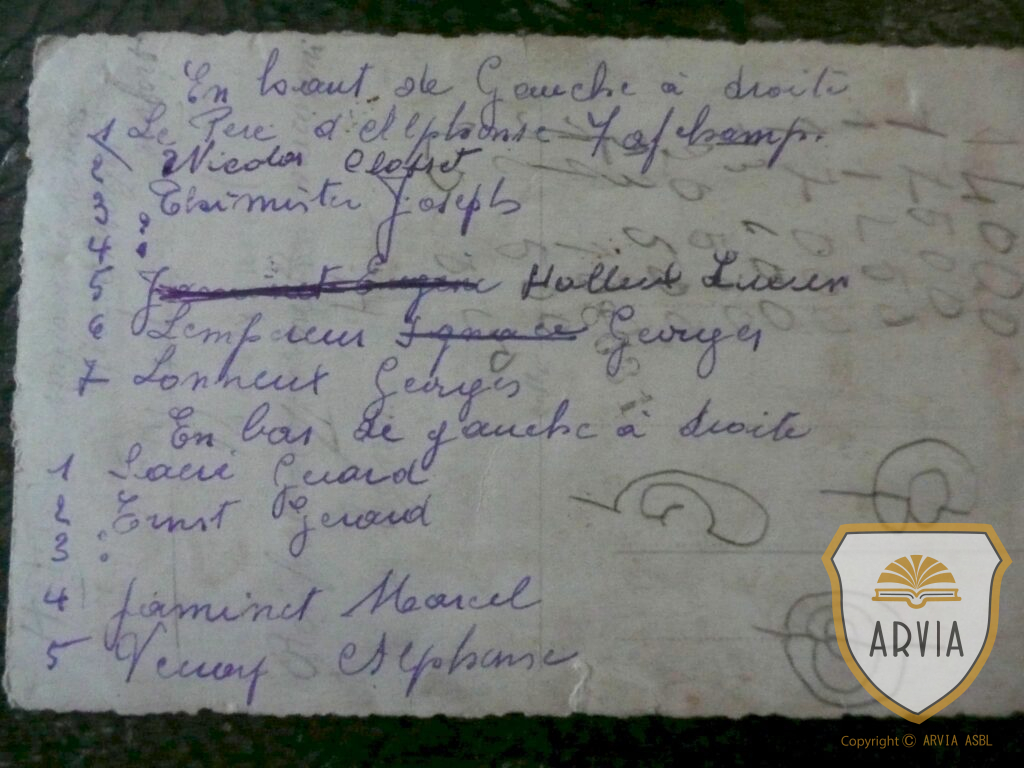 En haut de Gauche à droite
1 Le Père d'Alphonse
2 Nicolas Closset
3 Thimister Joseph
4 :
5 Jaminet Eugène Halleux Lucien
6 Lempereur Ignace Georges
7 Lonneux Georges
En bas de gauche à droite
1 Gerard
2 Ernst Gerard
3 :
4 Jaminet Marcel
5 Alphonse
ARVIA
Copyright © ARVIA ASBL